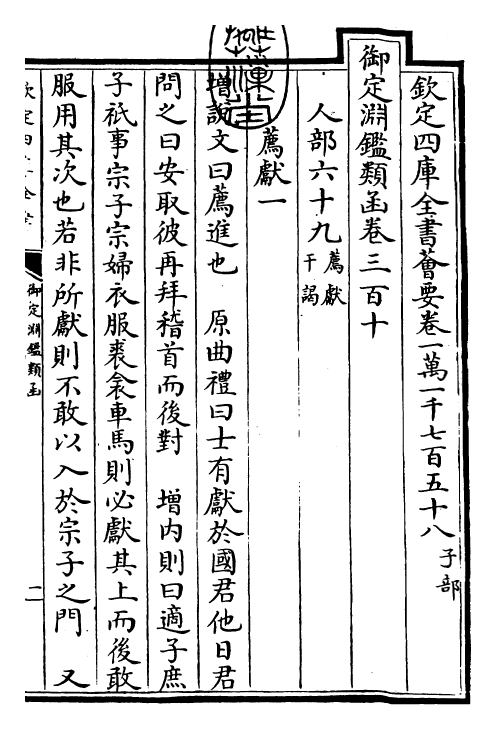 欽定四庫全書薈要卷一萬一千七百五十八 子部
御定淵鑑類函卷三百十
人部六十九 薦獻 干謁
薦獻一
增說文曰薦進也 原曲禮曰士有獻於國君他日君
問之曰安取彼再拜稽首而後對 增內則曰適子庶
子祇事宗子宗婦衣服裘衾車馬則必獻其上而後敢
服用其次也若非所獻則不敢以入於宗子之門 又
欽定四庫全書
御定淵鑑類函